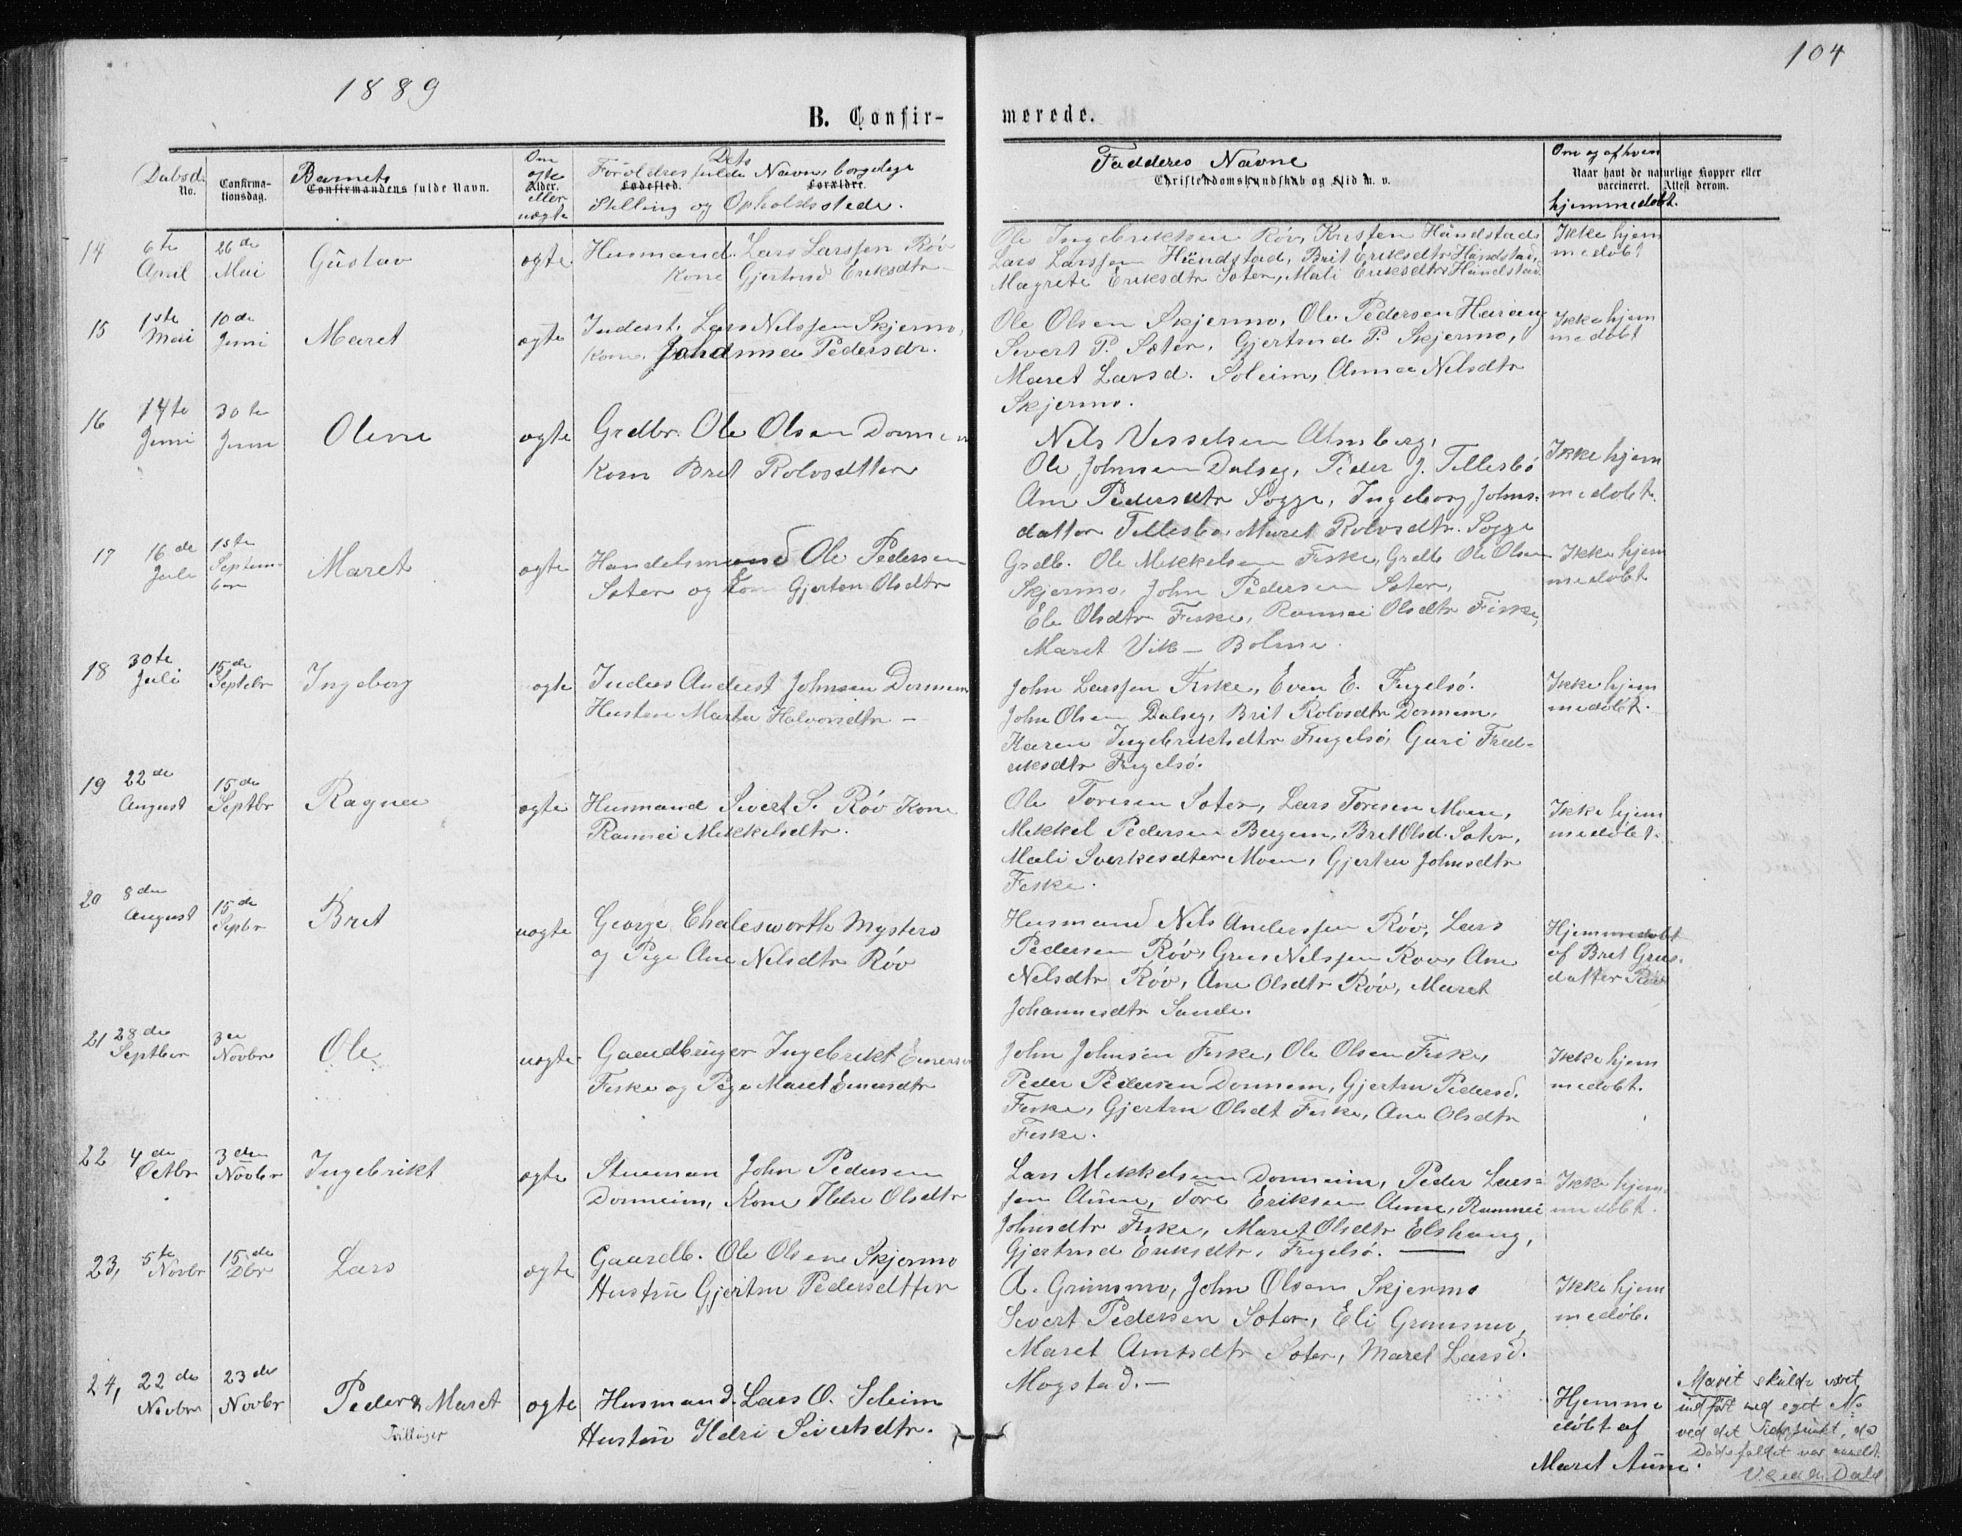 1889
104
B. Confir- merede.
Daabsd. No. Confirma-tionsdag. Barnets Confirmandens fulde Navn. Om ægte Alder. eller uægte Forældres fulde Navn, borgelige Dets Fødested. Forældre. Stilling og Opholdsstede. Fadderes Navne Christendomskundskab og Flid m. v. Om og af hvem Naar havt de naturlige Kopper eller vaccineret. Attest derom. hjemmedøbt.
14 6te April 26de Mai Gustav ægte Husmand Lars Larssen Røv
Kone Gjertrud Eriksdtr
Ole Ingebriktsen Røv, Kristen Håndstad
Lars Larssen Håndstad, Brit Eriksdtr Håndstad,
Magrete Eriksdtr Sæter, Mali Eriksdtr Håndstad
Ikke hjem
medøbt
15 1ste Mai 10de Juni Maret ægte Inderst. Lars Nilssen Skjermo,
Kone. Johanna Pedersdr.
Ole Olsen Skjermo, Ole Pedersen Haraug
Sivert P. Sæter, Gjertrud P. Skjermo,
Maret Larsd. Soleim, Anna Nilsdtr
Skjermo.
Ikke hjem
medøbt
16 14te Juni 30te Juni Oline ægte Grdbr. Ole Olsen Donnem
Kone Bret Rolvsdtter
Nils Vesselsen Almberg,
Ole Johnsen Dalseg, Peder J. Tellesbø
Ane Pedersdtr Sogge, Ingeborg Johns-
datter Tellesbø, Maret Rolvsdtr. Sogge
Ikke hjem
medøbt.
17 16de Juli 1ste Septem-ber Maret ægte Handelsmand Ole Pedersen
Sæter og Kone Gjertru Olsdtr
Grdb. Ole Mikkelsen Fiske, Grdb Ole Olsen
Skjermo, John Pedersen Sæter,
Ele Olsdtr Fiske, Rannei Olsdtr Fiske,
Maret Vik - Bolme.
Ikke hjem
medøbt
18 30te Juli 15de Septebr Ingeborg ægte Inders Anders Johnsen Donnem
Hustru Marta Halvorsdtr -
John Larssen Fiske, Even E. Fugelsø.
John Olsen Dalseg, Brit Rolvsdtr Donnem,
Karen Ingebriktsdtr Fugelsø, Guri Fred-
riksdtr Fugelsø.
Ikke hjem
medøbt.
19 22de August 15de Septbr Ragna ægte Husmand Sivert S. Røv Kone
Rannei Mikkelsdtr.
Ole Toresen Sæter, Lars Toresen Moen,
Mikkel Pedersen Bergem, Bret Olsd. Sæter,
Mali Sverkesdter Moen, Gjertru Johnsdtr
Fiske.
Ikke hjem
medøbt.
20 8den August 15de Sepbr Bret uægte George Chalesworth Mysters
og Pige Ane Nilsdtr Røv
Husmand Nils Anderssen Røv, Lars
Pedersen Røv, Grus Nilssen Røv, Ane
Nilsdtr Røv, Ane Olsdtr Røv, Maret
Johannesdtr Sande.
Hjemmedøbt
af Bret Grus-
datter Røv
21 28de Septber 3de Novbr Ole uægte Gaardbruger Ingebrikt Einersen
Fiske og Pige Maret Einersdtr
John Johnsen Fiske, Ole Olsen Fiske,
Peder Pedersen Donnem, Gjertru Pedersd.
Fiske, Gjertru Olsdt Fiske, Ane Olsdtr
Fiske.
Ikke hjem
medøbt.
22 4de Octbr 3den Novbr Ingebrikt ægte Stueman John Pedersen
Donneim, Kone, Ildri Olsdtr
Lars Mikkelsen Donneim, Peder Lars-
sen Aune, Tore Eriksen Aune, Rannei
Johnsdtr Fiske, Maret Olsdtr Elshaug,
Gjertrud Eriksdtr, Fugelsø.
Ikke hjem-
medøbt.
23, 5te Novbr 15de Dbr Lars ægte Gaardb. Ole Olsen Skjermo
Hustru Gjertru Pedersdtter
A. Grimsmo, John Olsen Skjermo
Sivert Pedersen Sæter, Eli Grimsmo,
Maret Arntsdtr Sæter, Maret Larsd.
Mogstad. -
Ikke hjem
medøbt.
24, 22de Novbr 23de Novbr Peder & Maret ægte Husmand. Lars O. Soleim
Tvillinger
Hustru Ildri Sivertsdtr.
Hjemme
døbt af
Maret Aune.
Marit skulde været
indført med eget No
ved det Tidspunkt, da
Dødsfaldet var meldt.